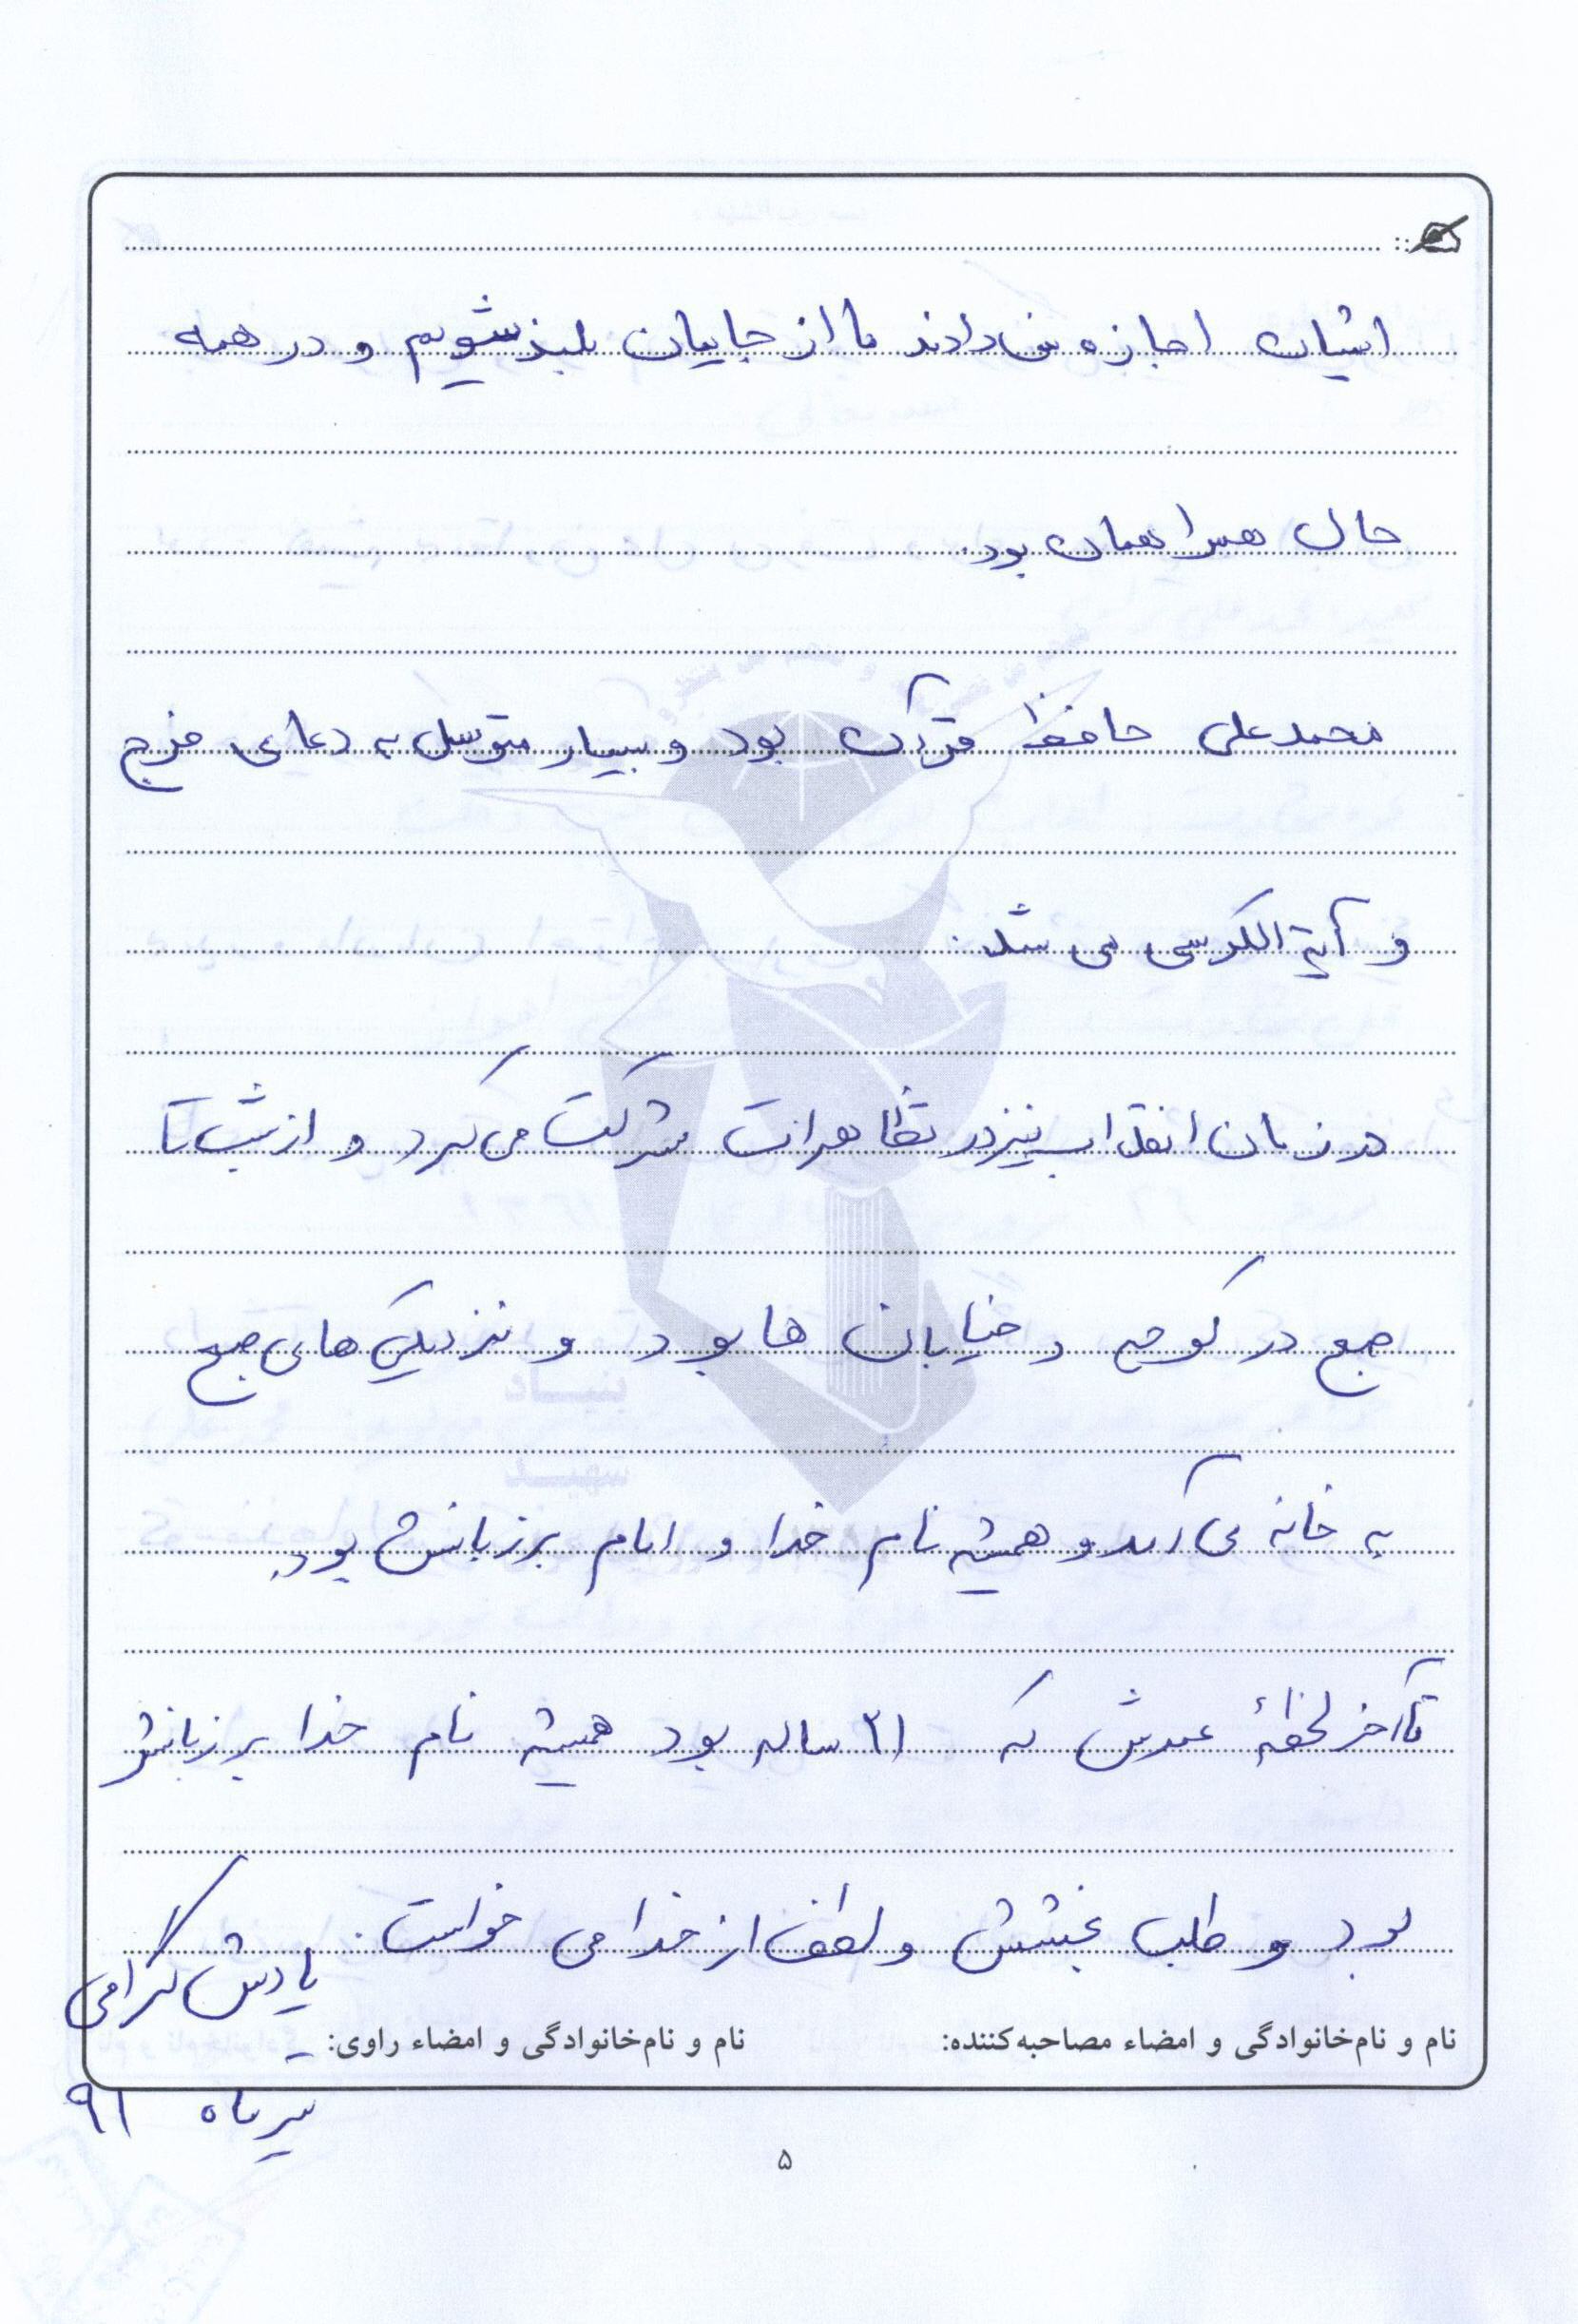 ایشان اجازه نمی دادند ما از جایمان بلند شویم و در همه
حال همراهمان بود.
محمد علی حافظ قرآن بود و بسیار متوسل به دعای فرج
و آیة الکرسی می شد.
در زمان انقلاب نیز در تظاهرات شرکت می کرد و از شب تا
صبح در کوچه و خیابان ها بود و نزدیکی های صبح
به خانه می آمد و همیشه نام خدا و امام بر زبانش بود.
تا آخر لحظهٔ عمرش که ۲۱ ساله بود همیشه نام خدا بر زبانش
بود و طلب بخشش و لطف از خدا می خواست. یادش گرامی
نام و نام‌خانوادگی و امضاء مصاحبه‌کننده: نام و نام‌خانوادگی و امضاء راوی:
تیر ماه ۹۱
۵